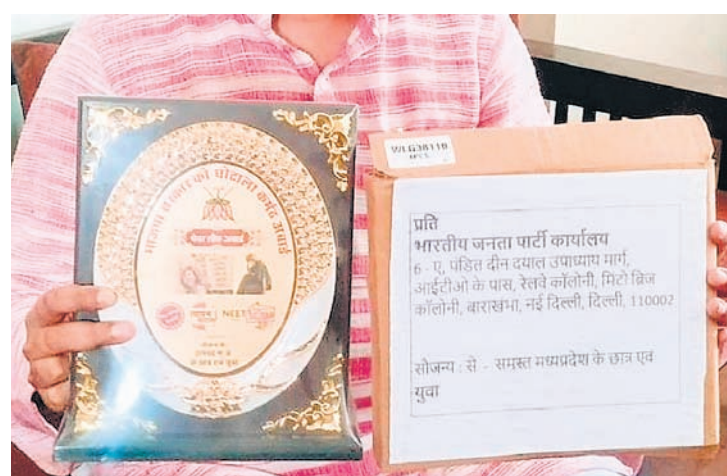 भाजपा सरकार को घोटाला कर्मठ अवार्ड
पेपर लीक अवार्ड
NEET
WLG38110
प्रति
भारतीय जनता पार्टी कार्यालय
6 - ए, पंडित दीन दयाल उपाध्याय मार्ग,
आईटीओ के पास, रेलवे कॉलोनी, मिटो ब्रिज
कॉलोनी, बाराखभा, नई दिल्ली, दिल्ली, 110002
सोजन्य : से - समस्त मध्यप्रदेश के छात्र एवं
युवा